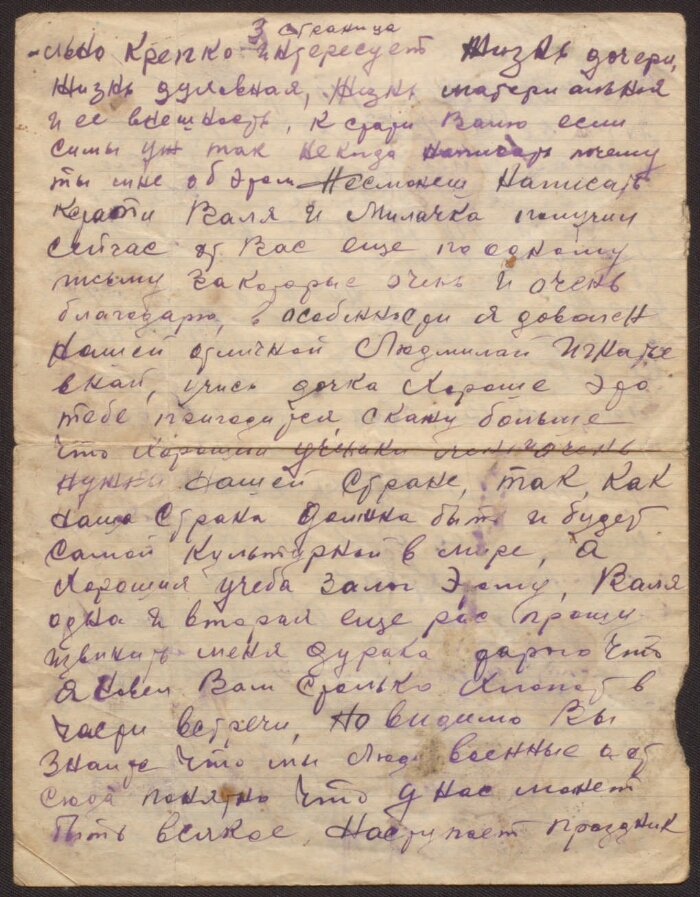 3 страница
-льно крепко интересует жизнь дочери,
жизнь духовная, жизнь материальная
и ее внешность, кстати Валю если
силы уж так некогда написать почему
ты мне об этом несможеш написать
Кстати Валя и Милачка получил
сейчас от Вас еще по одному
письму за которые очень и очень
благодарю, в особенности я доволен
нашей отличной Людмилай Игнатье
вной, учись дочка хороше это
тебе пригодится, скажу больше
что хорошии ученики очень
нужны нашей стране, так, как
наша страна должна быть и будет
самой культурной в мире, а
хорошия учеба залог этому, Валя
одна и вторая еще рас прошу
извинить меня дурака старого что
я навел Вам столько хлопот в
части встречи, но видимо Вы
знаите что мы люди военные и от
сюда понятно что у нас может
быть всякое, Наступает праздник